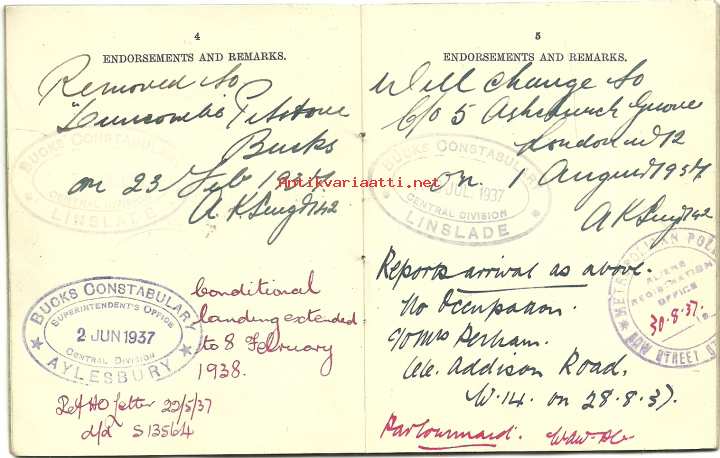 4
ENDORSEMENTS AND REMARKS.
Removed to
Bucks
on 23 Feb 1937
BUCKS CONSTABULARY
CENTRAL DIVISION
LINSLADE
BUCKS CONSTABULARY
SUPERINTENDENT'S OFFICE
2 JUN 1937
CENTRAL DIVISION
AYLESBURY
Conditional
landing extended
to 8 February
1938.
Ref HO letter 22/5/37
d/d S 13564
5
ENDORSEMENTS AND REMARKS.
Will change to
c/o 5 Ashchurch Grove
London W 12
on 1 August 1937
BUCKS CONSTABULARY
JUL 1937
CENTRAL DIVISION
LINSLADE
Reports arrival as above.
No Occupation.
c/o Mrs Perham.
Addison Road,
W.14. on 28.8.37.
Parlourmaid.
METROPOLITAN POLI
ALIENS
REGISTRATION
OFFICE
30.8.37.
BOW STREET
Antikvariaatti.net